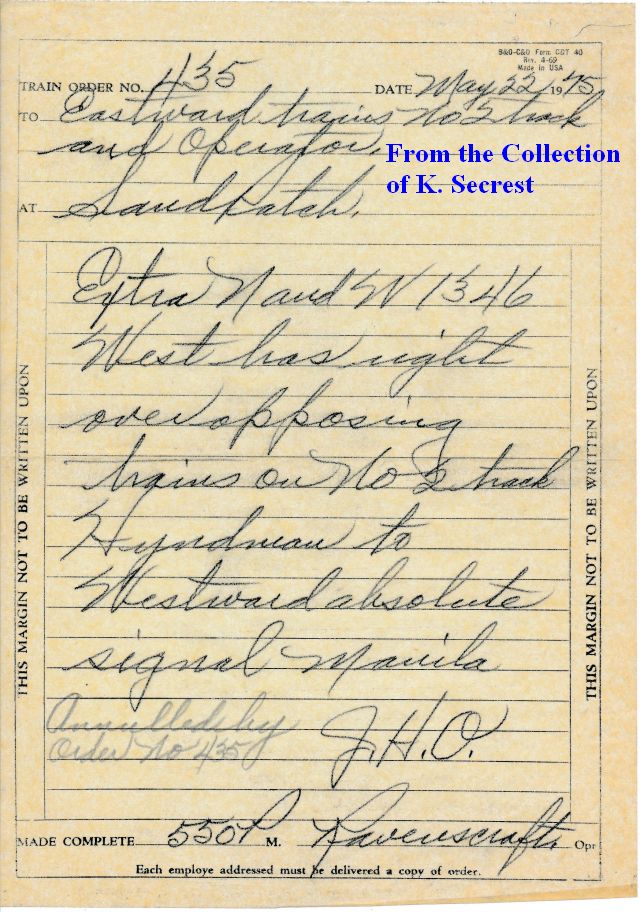 B&O-C&O Form CDT 40
Rev. 4-69
Made in USA
TRAIN ORDER NO. 435 DATE May 22 1975
TO Eastward trains No 2 track
and Operator,
From the Collection
of K. Secrest
AT Sandpatch.
Extra N and W 1346
West has right
over opposing
trains on No 2 track
Hyndman to
Westward absolute
signal Manila
Annulled by
Order No 435
J.H.O.
MADE COMPLETE 550 P M. Ravenscraft Opr
Each employe addressed must be delivered a copy of order.
THIS MARGIN NOT TO BE WRITTEN UPON
THIS MARGIN NOT TO BE WRITTEN UPON